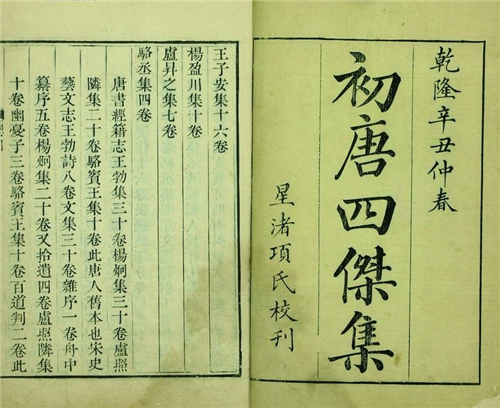 乾隆辛丑仲春
初唐四傑集
星渚項氏校刊
王子安集十六卷
楊盈川集十卷
盧昇之集七卷
駱丞集四卷
唐書經籍志王勃集三十卷楊炯集三十卷盧照
隣集二十卷駱賓王集十卷此唐人舊本也宋史
藝文志王勃詩八卷文集三十卷雜序一卷舟中
纂序五卷楊炯集二十卷又拾遺四卷盧照隣集
十卷幽憂子三卷駱賓王集十卷百道判二卷此